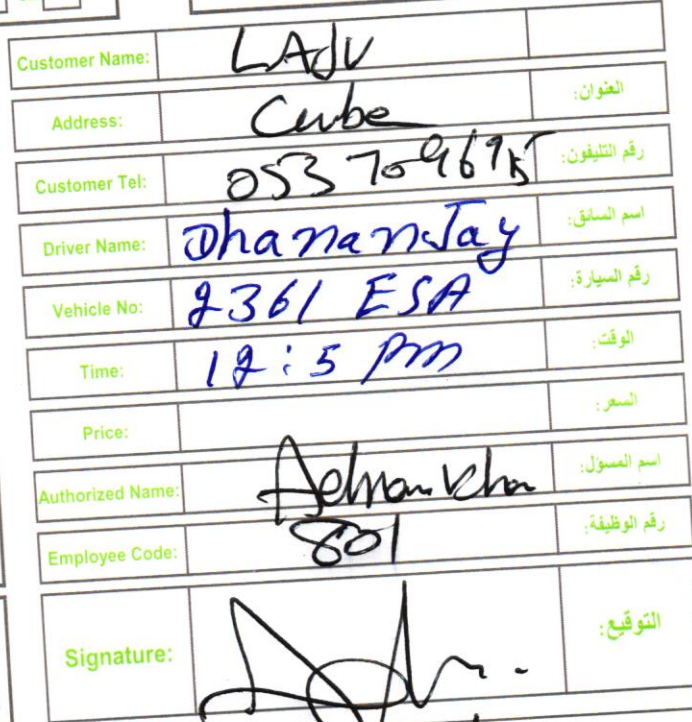 Customer Name: LAJU
Address: Cube العنوان:
Customer Tel: 053 7096915 رقم التليفون:
Driver Name: DhananJay اسم السائق:
Vehicle No: 2361 ESA رقم السيارة:
Time: 12:5 pm الوقت:
Price: السعر:
Authorized Name: Adnan Khan اسم المسؤل:
Employee Code: 801 رقم الوظيفة:
Signature: التوقيع: